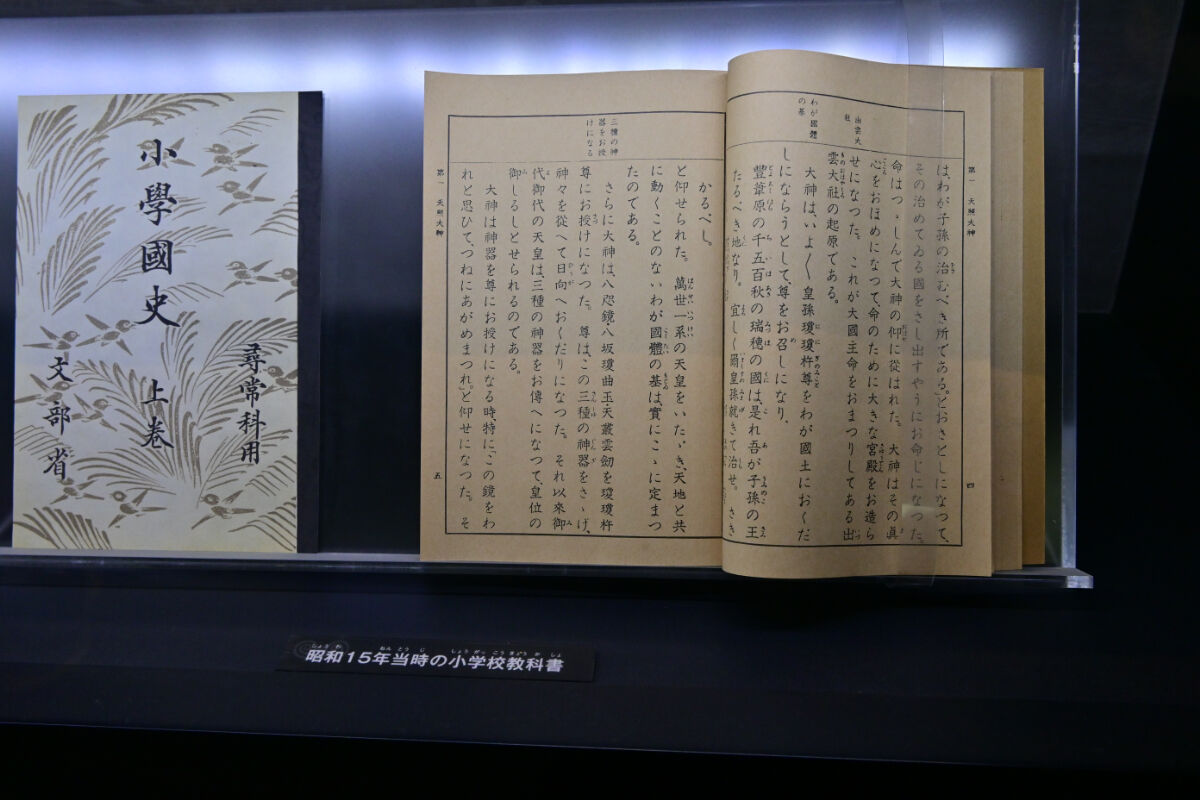 小學國史 上卷
尋常科用
文部省
第一 天照大神
四
出雲大社
わが國體の基
は、わが子孫の治むべき所である。」とおさとしになつて、
その治めてゐる國をさし出すやうにお命じになつた。
命はつゝしんで大神の仰に從はれた。大神はその眞
心をおほめになつて、命のために大きな宮殿をお造ら
せになつた。これが大國主命をおまつりしてある出
雲大社の起原である。
大神は、いよ〳〵皇孫瓊瓊杵尊をわが國土におくだ
しにならうとして、尊をお召しになり、
豐葦原の千五百秋の瑞穗の國は、是れ吾が子孫の王
たるべき地なり。宜しく爾皇孫就きて治せ。さき
三種の神器をお授けになる
かるべし。
と仰せられた。萬世一系の天皇をいたゞき、天地と共
に動くことのないわが國體の基は、實にこゝに定まつ
たのである。
さらに大神は、八咫鏡・八坂瓊曲玉・天叢雲劒を瓊瓊杵
尊にお授けになつた。尊は、この三種の神器をさゝげ、
神々を從へて日向へおくだりになつた。それ以來御
代御代の天皇は、三種の神器をお傳へになつて、皇位の
御しるしとせられるのである。
大神は神器を尊にお授けになる時、特に、「この鏡をわ
れと思ひて、つねにあがめまつれ。」と仰せになつた。そ
第一 天照大神
五
昭和15年当時の小学校教科書